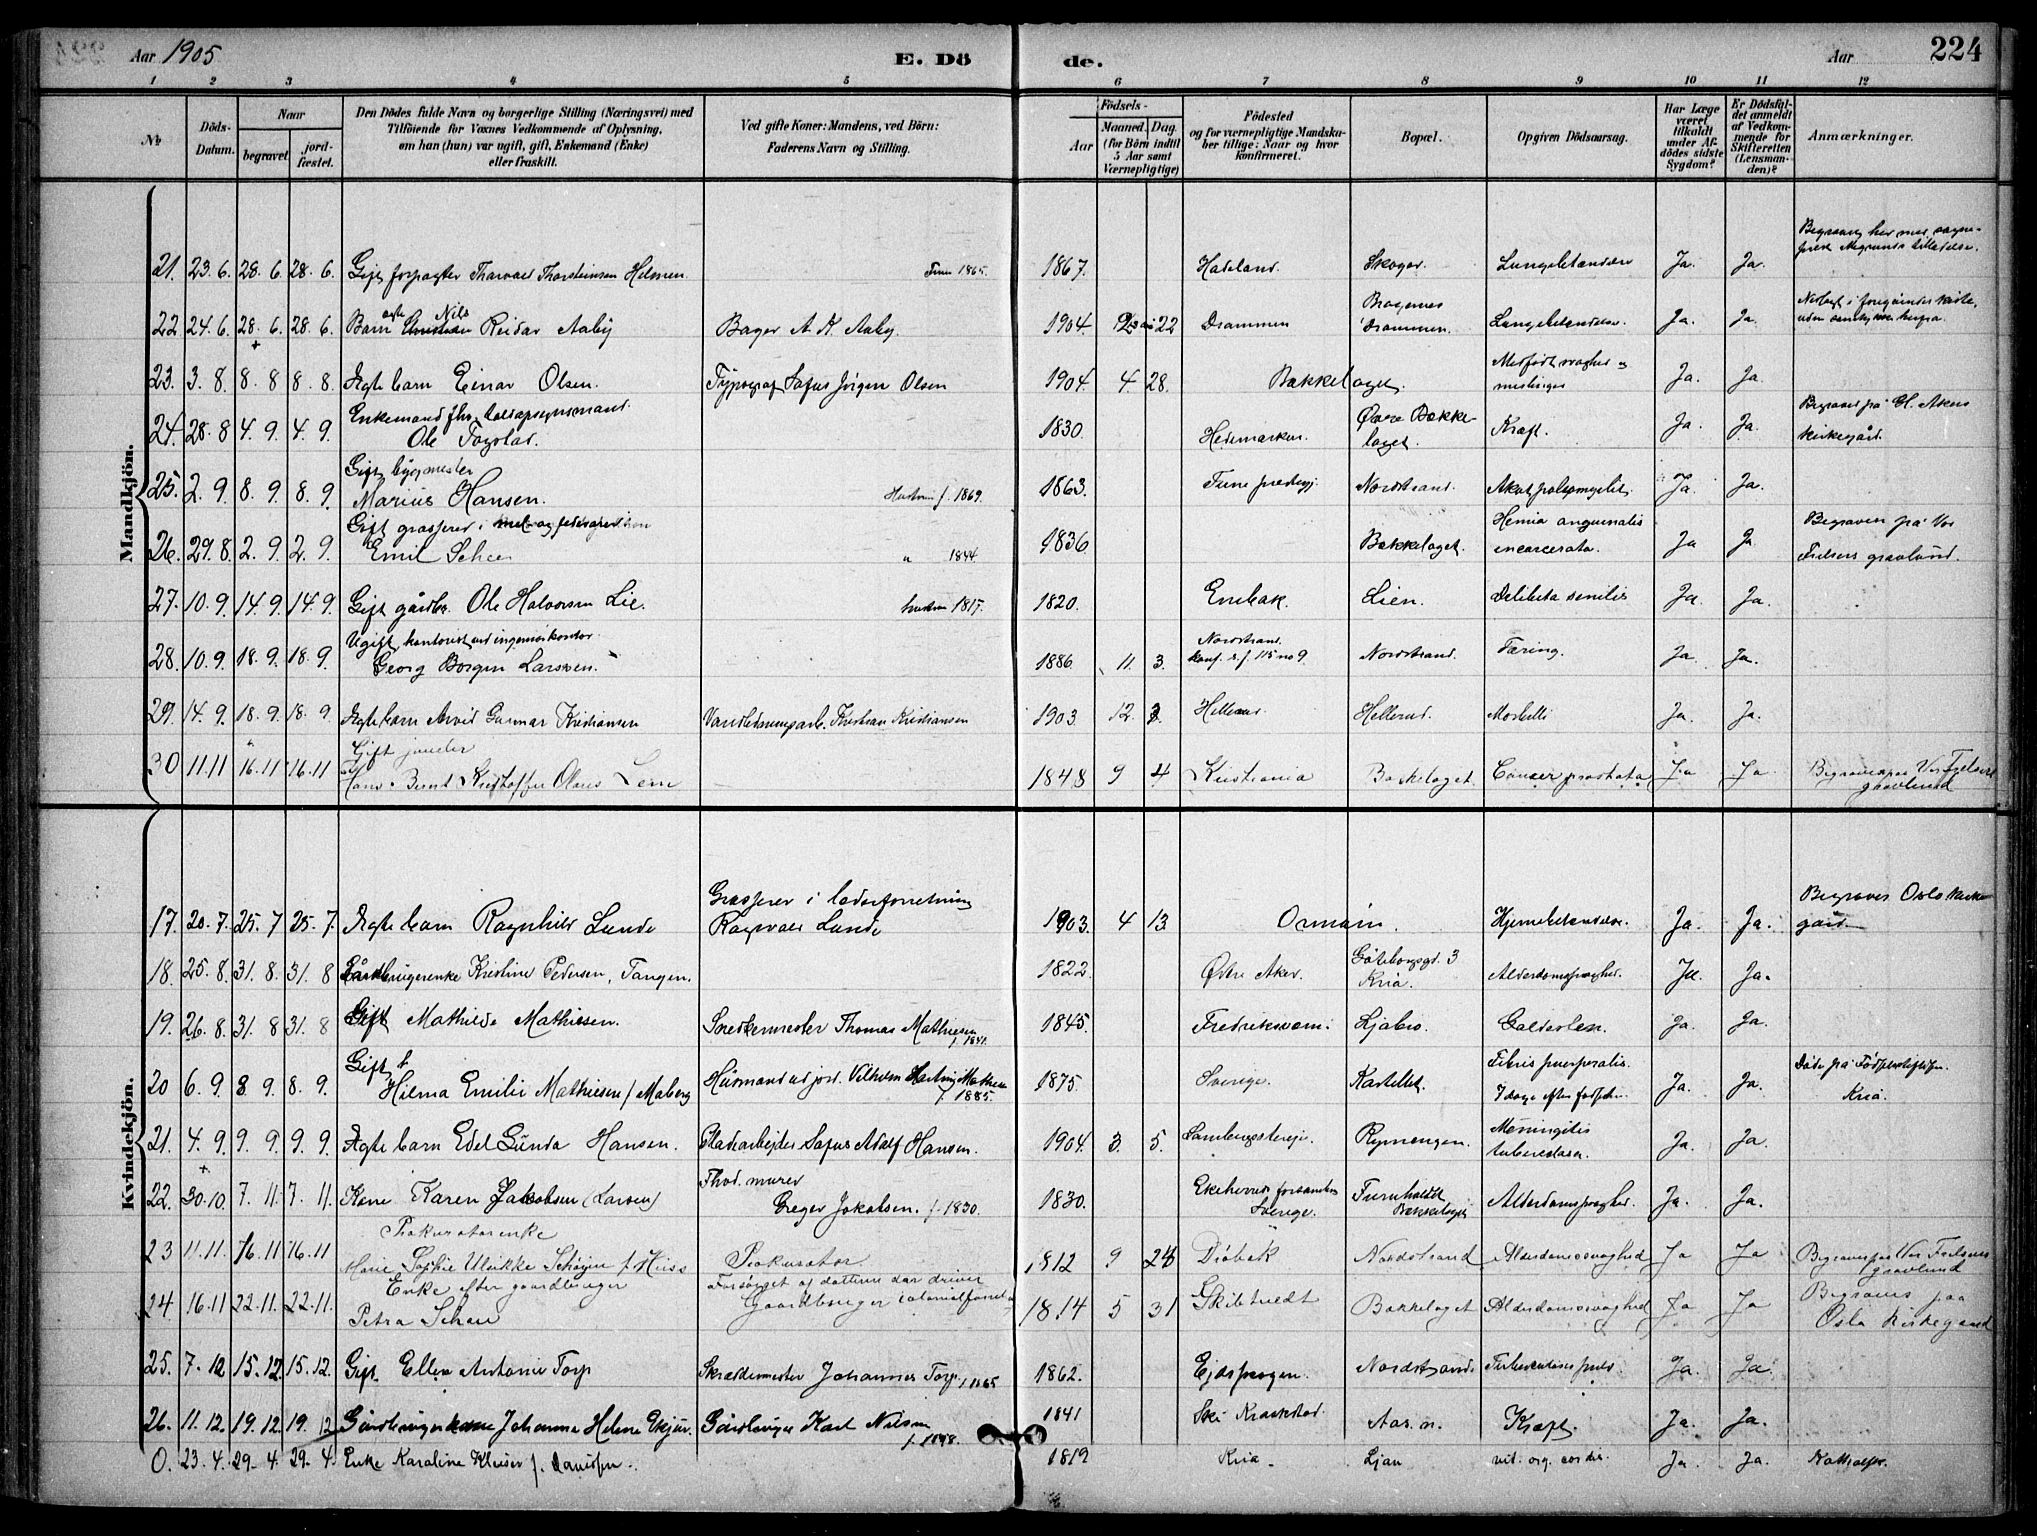 Aar 1905
E. Dö
de.
Aar
224
1 2 3 4 5 6 7 8 9 10 11 12
No.
Döds-
Datum.
Naar
begravet.
jord-
fæstet.
Den Dödes fulde Navn og borgerlige Stilling (Næringsvei) med
Tilföiende for Voxnes Vedkommende af Oplysning,
om han (hun) var ugift, gift, Enkemand (Enke)
eller fraskilt.
Ved gifte Koner: Mandens, ved Börn:
Faderens Navn og Stilling.
Födsels-
Aar
Maaned.
Dag.
(for Börn indtil
5 Aar samt
Værnepligtige)
Födested
og for værnepligtige Mandska-
ber tillige: Naar og hvor
konfirmeret.
Bopæl.
Opgiven Dödsaarsag.
Har Læge
været
tilkaldt
under Af-
dödes sidste
Sygdom?
Er Dödsfal-
det anmeldt
af Vedkom-
mende for
Skifteretten
(Lensman-
den)?
Anmærkninger.
Mandkjön.
21. 23. 6. 28. 6. 28. 6. Gift forpagter Thorvald Thorsteinsen Helmen 1865. 1867. Hadeland. Skoger. Lungebetændelse Ja. Ja. Begravet her med
22. 24. 6. 28. 6. 28. 6. Barn ægte Nils Reidar Aaby Bager A. K. Aaby. 1904 22 Drammen Bragernes Drammen. Lungebetændelse. Ja. Ja.
23. 3. 8. 8. 8 8. 8. Ægte barn Einar Olsen. Typograf Sofus Jörgen Olsen 1904 4 28. Bækkelaget. Medfødt svaghed og meslinger Ja. Ja.
24. 28. 8 4. 9. 4. 9. Enkemand fhv.
Ole Fogstad. 1830. Hedemarken. Øvre Bække-
laget. Kræft. Ja. Ja. Begravet på Gl. Akers
kirkegård.
25. 2. 9. 8. 9. 8. 9. Gift bygmester
Marius Hansen. Hustru f. 1869. 1863. Tune prestegj. Nordstrand. Akut poliomyelit. Ja. Ja.
26. 29. 8. 2. 9. 2. 9. Gift grosserer i mel og fedevarer
Emil Schee " 1844. 1836. Bækkelaget. Hernia inguinalis
incarcerata. Ja Ja Begraven på Vor
Frelsers gravlund.
27. 10. 9. 14. 9. 14. 9. Gift gårdbr. Ole Halvorsen Lie. hustru 1817. 1820. Enebak. Lien. Debilitas senilis Ja. Ja.
28. 10. 9. 18. 9. 18. 9. Ugift, kontorist ved ingeniørkontor.
Georg Borgen Larssen. 1886 11. 3. Nordstrand.
konf. s. f. 115 no 9. Nordstrand. Tæring. Ja Ja.
29. 14. 9. 18. 9. 18. 9. Ægte barn Arvid Gunnar Kristiansen Vandledningsarb. Kristian Kristiansen 1903 12. 3. Hellerud. Hellerud. Morbilli Ja. Ja.
30 11.11 16.11 16.11 Gift
Hans Bernt Kristoffer Olaus Lem 1848 9 4 Kristiania Bækkelaget. Cancer prostata Ja Ja Begraves paa Vor Frelsers
gravlund
Kvindekjön.
17. 20. 7. 25. 7 25. 7. Ægte barn Ragnhild Lunde Grosserer i læderforretning
Ragnvald Lunde 1903. 4 13 Ormøin. Hjernebetændelse. Ja. Ja. Begraves Oslo kirke-
gård
18. 25. 8. 31. 8. 31. 8 Gårdbrugerenke Kristine Pedersen, Tangen. 1822. Østre Aker. Göteborggd. 3
Kria. Alderdomssvaghed. Ja. Ja.
19. 26. 8. 31. 8 31. 8 Gift Mathilde Mathiesen. Snedkermester Thomas Mathiesen
f. 1841. 1845. Fredriksværn. Ljabro. Galdesten. Ja. Ja.
20 6. 9. 8. 9. 8. 9. Gift
Hilma Emilie Mathiesen f. Moberg Husmand ud. jord. Vilhelm Mathiesen
f. 1885. 1875. Sverige. Kastellet. Febris puerperalis.
7 dage efter fødselen. Ja. Ja. Døde på Fødselsstiftelsen.
Kria.
21. 4. 9. 9. 9. 9. 9 Ægte barn Edel Gunda Hansen. Pladearbejder Sofus Adolf Hansen. 1904. 3. 5. Ryenengen. Meningitis
tuberculosa. Ja. Ja.
22. 30. 10. 7. 11. 7. 11. Kone Karen Jakobsen (Larsen) Fhv. murer
Greger Jakobsen. f. 1830. 1830. Sverige. Furuholdt
Bækkelaget Alderdomssvaghed. Ja. Ja.
23 11.11. 16.11 16.11 Prokuratorenke
Marie Sophie Ulrikke Schøyen f. Huss Prokurator 1812 9 24 Drøbak Nordstrand Alderdomssvaghed Ja Ja Begraves paa Vor Frelsers
gravlund
24. 16.11 22.11. 22.11. Enke efter gaardbruger
Petra Schou Forsørget af datteren der driver
Gaardbruger colonialforretn. 1814 5 31 Skibtvedt Bækkelaget Alderdomssvaghed Ja Ja Begraves paa
Oslo kirkegaard
25. 7. 12 15. 12. 15. 12. Gift. Ellen Antonie Torp Skræddermester Johannes Torp f. 1865 1862. Ejdskogen. Nordstrand. Tuberculosis pulm. Ja. Ja.
26. 11. 12. 19. 12. 19. 12 Gårdbrugerkone Johanne Helene Ekjur. Gårdbruger Karl Nilsen
f. 1848. 1841 Ski Kraakstad. Aas. n. Kræft. Ja. Ja.
0. 23. 4. 29. 4. 29. 4. Enke Karoline Kleiser f. Davidsen. 1819 Kria. Ljan vit. org. cordis. Ja. Ja.